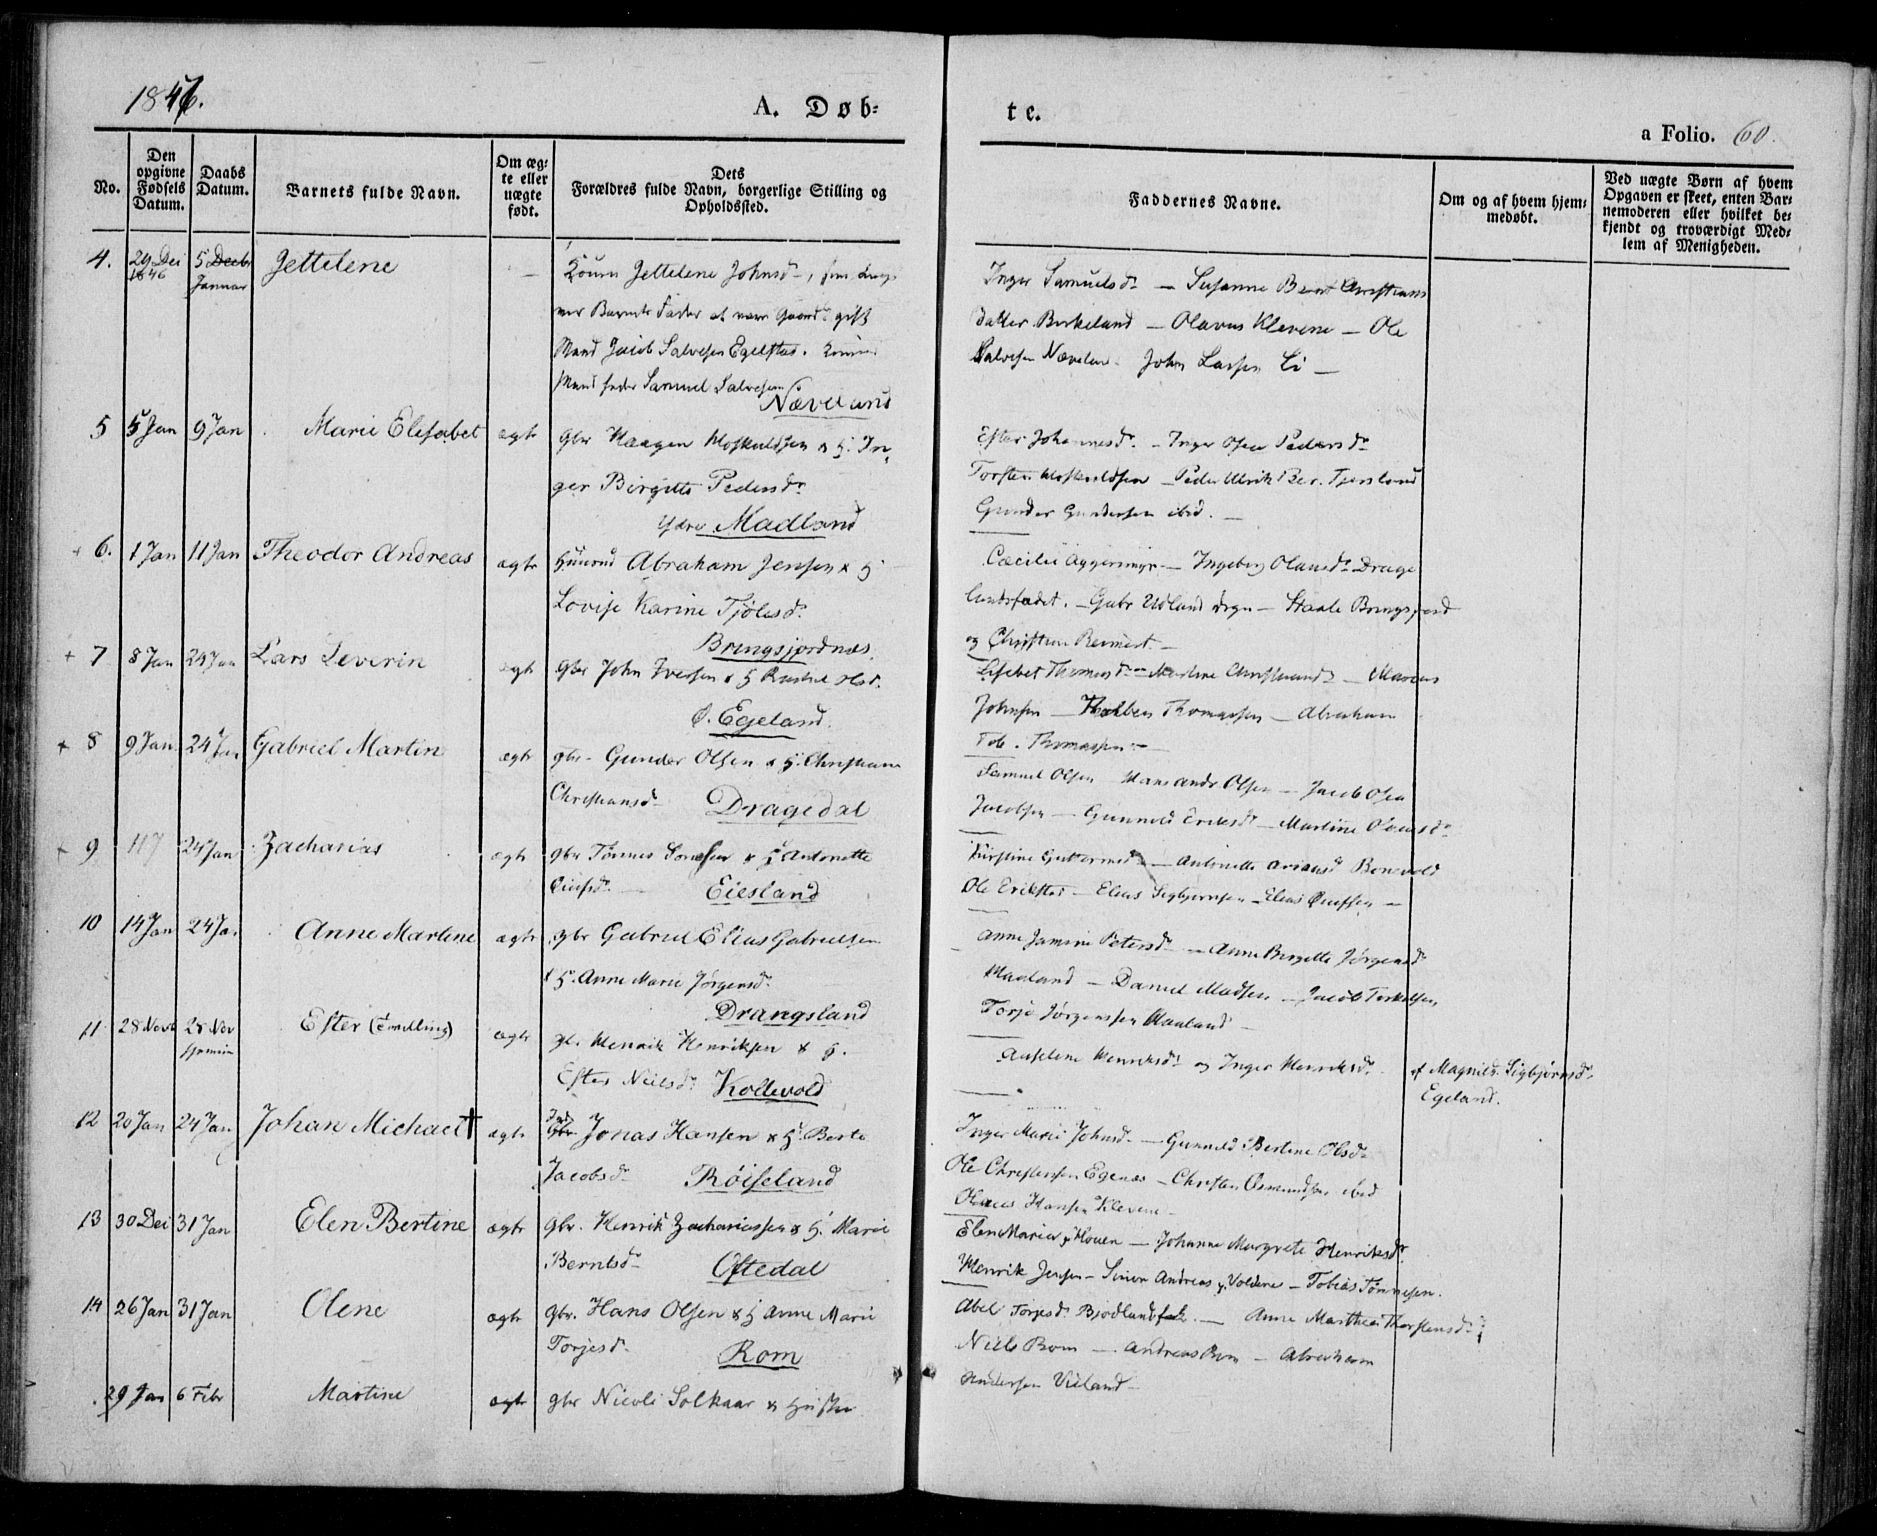 1847.
A. Døb-
te.
a Folio. 60.
No.
Den opgivne Fødsels Datum.
Daabs Datum.
Barnets fulde Navn.
Om ægte eller uægte født.
Dets Forældres fulde Navn, borgerlige Stilling og Opholdssted.
Faddernes Navne.
Om og af hvem hjemmedøbt.
Ved uægte Børn af hvem Opgaven er skeet, enten Barnemoderen eller hvilket bekjendt og troværdigt Medlem af Menigheden.
4. 29 Dei 1846 5 Januar Jettelene — Jettelene Johnsd., som
Barnets Fader at være gift
Mand Jacob Salvesen Egelstad.
Mand fader Samuel Salvesen
Næveland
Inger Samuelsd. — Susanne Christians
datter Birkeland — Olavus Klevene — Ole
Salvesen Næveland. John Larsen Li —
5 5 Jan 9 Jan Marie Elisabet ægte gbr Haagen Moskuldsen & H. In-
ger Birgitte Pedersd.
Ydre Madland
Ester Johannesd. — Inger Olea Pedersd.
Torsten Moskuldsen — Peder Ulrik Ber. Tjorsland
Gunder Gundersen ibid. —
6. 1 Jan 11 Jan Theodor Andreas ægte Huusmd Abraham Jensen & H
Lovise Karine Tjølesd.
Bringsjordnæs.
Cæcilie Aggersmyr — Ingeborg Olausd. Drage
landsfædet. — Gabr Udland — Staale Bringsjord
og Christian Reimert —
7 8 Jan 24 Jan Lars Severin ægte gbr John Iversen & H Rachel Olsd.
Ø. Egeland.
Lisebet Thomasd. — Martine Christiansd. — Marcus
Johnsen — Thomassen — Abraham
Tob. Thomassen —
8 9 Jan 24 Jan Gabriel Martin ægte gbr. Gunder Olsen & H. Christiane
Christiansd. Dragedal
Samuel Olsen — Hans Andr Olsen — Jacob Olea
Jacobsen — Gunnild Eriksd. — Martine Olausd.
9 11/1 24 Jan Zacharias ægte gbr Tønnes Sørensen & H Antonette
Eiesland
Kirstine Guttormsd. — Antonette
Ole Erikstad — Elias Sigbjørnsen — Elias —
10 14 Jan 24 Ja. Anne Martine ægte gbr Gabriel Elias Gabrielsen
& H. Anne Marie Jørgensd.
Drangsland
Anne Jamine Petersd. — Anne Birgitte Jørgensd.
Maaland — Daniel Madsen — Jacob Terkelsen
Torje Jørgenssen Maaland —
11 28 Novb 28 Nov hjemme Ester (tvilling) ægte gbr Henrik Henriksen & H.
Ester Nielsd. Kollevold
Anselene Henriksd. og Inger Henriksd.
af Magnild Sigbjørnsd.
Egeland.
12 20 Jan 24 Jan Johan Michael † ægte Jonas Hansen & H. Berte
Jacobsd. Røiseland
Inger Marie Johnsd. — Gunnild Bertine Olsd.
Ole Christensen Egenæs — Christen Osmundsen ibid
Olaus Hansen Klevene —
13 30 Dei 31 Jan Elen Bertine ægte gbr. Henrik Zachariassen & H. Marie
Berntsd. Oftedal
Elen Maria p Houen — Johanne Margrete Henriksd.
Henrik Jensen — Simon Andreas p. Voldene — Tobias Tønnesen.
14 26 Jan 31 Jan Olene ægte gbr. Hans Olsen & H Anne Marie
Torjesd. Rom
Abel Torjesd. — Anne Marthea Thorstensd.
Niels Rom — Andreas Rom — Abraham
Andersen Vieland —
29 Jan 6 Febr Martine ægte gbr Nicoli Solkaar & Hustru